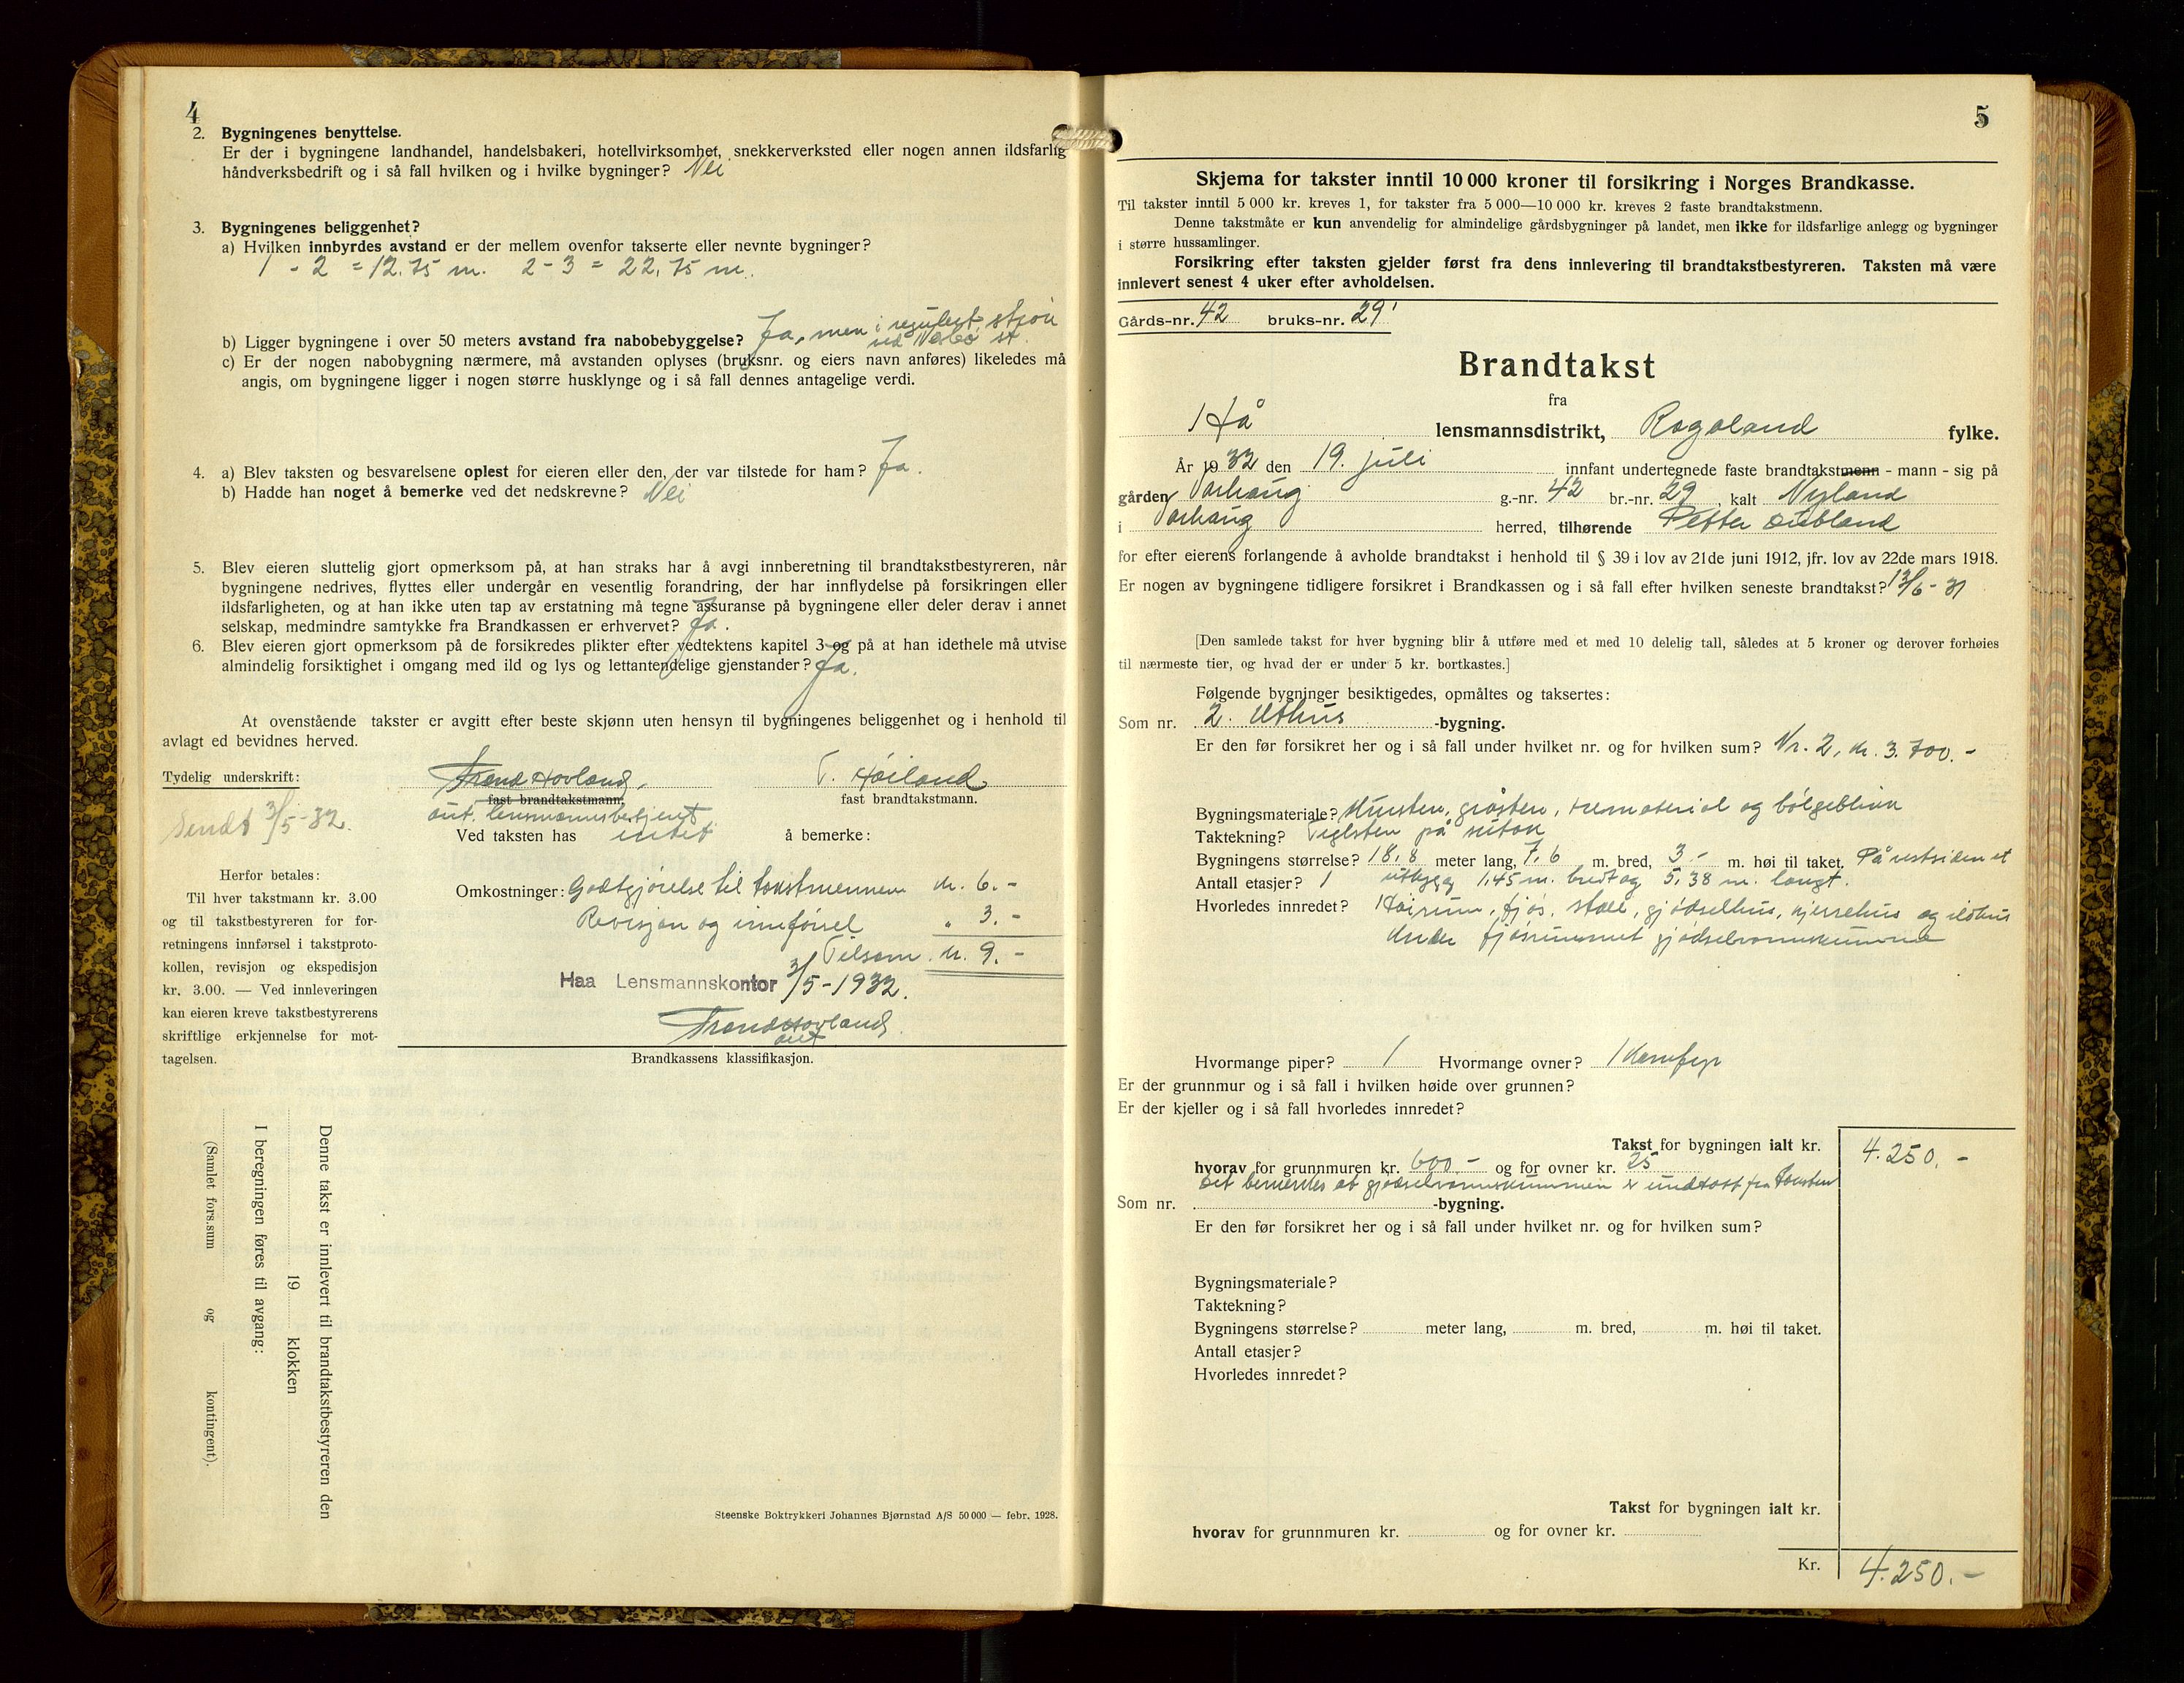 4
2. Bygningenes benyttelse.
Er der i bygningene landhandel, handelsbakeri, hotellvirksomhet, snekkerverksted eller nogen annen ildsfarlig
håndverksbedrift og i så fall hvilken og i hvilke bygninger? Nei
3. Bygningenes beliggenhet?
a) Hvilken innbyrdes avstand er der mellem ovenfor takserte eller nevnte bygninger?
1 - 2 = 12.75 m. 2 - 3 = 22,75 m.
b) Ligger bygningene i over 50 meters avstand fra nabobebyggelse? Ja, men i regulert strøk
ved Nærbø st.
c) Er der nogen nabobygning nærmere, må avstanden oplyses (bruksnr. og eiers navn anføres) likeledes må
angis, om bygningene ligger i nogen større husklynge og i så fall dennes antagelige verdi.
4. a) Blev taksten og besvarelsene oplest for eieren eller den, der var tilstede for ham? Ja.
b) Hadde han noget å bemerke ved det nedskrevne? Nei
5. Blev eieren sluttelig gjort opmerksom på, at han straks har å avgi innberetning til brandtakstbestyreren, når
bygningene nedrives, flyttes eller undergår en vesentlig forandring, der har innflydelse på forsikringen eller
ildsfarligheten, og at han ikke uten tap av erstatning må tegne assuranse på bygningene eller deler derav i annet
selskap, medmindre samtykke fra Brandkassen er erhvervet? Ja.
6. Blev eieren gjort opmerksom på de forsikredes plikter efter vedtektens kapitel 3 og på at han idethele må utvise
almindelig forsiktighet i omgang med ild og lys og lettantendelige gjenstander? Ja.
At ovenstående takster er avgitt efter beste skjønn uten hensyn til bygningenes beliggenhet og i henhold til
avlagt ed bevidnes herved.
Tydelig underskrift:
Trond Hovland. T. Høiland
fast brandtakstmann, fast brandtakstmann.
aut. lensmannsbetjent
Sendt 3/5-32.
Ved taksten has intet å bemerke:
Herfor betales:
Til hver takstmann kr. 3.00
og til takstbestyreren for for-
retningens innførsel i takstproto-
kollen, revisjon og ekspedisjon
kr. 3.00. — Ved innleveringen
kan eieren kreve takstbestyrerens
skriftlige erkjennelse for mot-
tagelsen.
Omkostninger: Godtgjørelse til takstmennene kr. 6.-
Revisjon og innførsel " 3.-
Tilsam. kr. 9.-
Haa Lensmannskontor 3/5-1932.
Trond Hovland
aut
Brandkassens klassifikasjon.
Denne takst er innlevert til brandtakstbestyreren den
19 klokken
I beregningen føres til avgang:
(Samlet fors.sum og kontingent).
Steenske Boktrykkeri Johannes Bjørnstad A/S 50 000 — febr. 1928.
5
Skjema for takster inntil 10 000 kroner til forsikring i Norges Brandkasse.
Til takster inntil 5 000 kr. kreves 1, for takster fra 5 000—10 000 kr. kreves 2 faste brandtakstmenn.
Denne takstmåte er kun anvendelig for almindelige gårdsbygninger på landet, men ikke for ildsfarlige anlegg og bygninger
i større hussamlinger.
Forsikring efter taksten gjelder først fra dens innlevering til brandtakstbestyreren. Taksten må være
innlevert senest 4 uker efter avholdelsen.
Gårds-nr. 42 bruks-nr. 29
Brandtakst
fra
Hå lensmannsdistrikt, Rogaland fylke.
År 1932 den 19. juli innfant undertegnede faste brandtakstmenn - mann - sig på
gården Varhaug g.-nr. 42 br.-nr. 29, kalt Nyland
i Varhaug herred, tilhørende Petter Aubland
for efter eierens forlangende å avholde brandtakst i henhold til § 39 i lov av 21de juni 1912, jfr. lov av 22de mars 1918.
Er nogen av bygningene tidligere forsikret i Brandkassen og i så fall efter hvilken seneste brandtakst? 13/6-31
[Den samlede takst for hver bygning blir å utføre med et med 10 delelig tall, således at 5 kroner og derover forhøies
til nærmeste tier, og hvad der er under 5 kr. bortkastes.]
Følgende bygninger besiktigedes, opmåltes og taksertes:
Som nr. 2. Uthus -bygning.
Er den før forsikret her og i så fall under hvilket nr. og for hvilken sum? Nr. 2, kr. 3.700.-
Bygningsmateriale? Mursten, gråsten, trematerial og bølgeblikk
Taktekning? Teglsten på sutak
Bygningens størrelse? 18,8 meter lang, 7,6 m. bred, 3.- m. høi til taket. På vestsiden et
Antall etasjer? 1 utbygg 1,45 m. bredt og 5,38 m. langt.
Hvorledes innredet? Høirum, fjøs, stall, gjødselhus, kjerrehus og ildhus
Under fjøsrummet gjødselvannskumme
Hvormange piper? 1 Hvormange ovner? 1
Er der grunnmur og i så fall i hvilken høide over grunnen?
Er der kjeller og i så fall hvorledes innredet?
Takst for bygningen ialt kr. 4.250.-
hvorav for grunnmuren kr. 600.- og for ovner kr. 25
Det bemerkes at gjødselvannskummen er undtatt fra taksten
Som nr. -bygning.
Er den før forsikret her og i så fall under hvilket nr. og for hvilken sum?
Bygningsmateriale?
Taktekning?
Bygningens størrelse? meter lang, m. bred, m. høi til taket.
Antall etasjer?
Hvorledes innredet?
Takst for bygningen ialt kr.
hvorav for grunnmuren kr. og for ovner kr.
Kr. 4.250.-